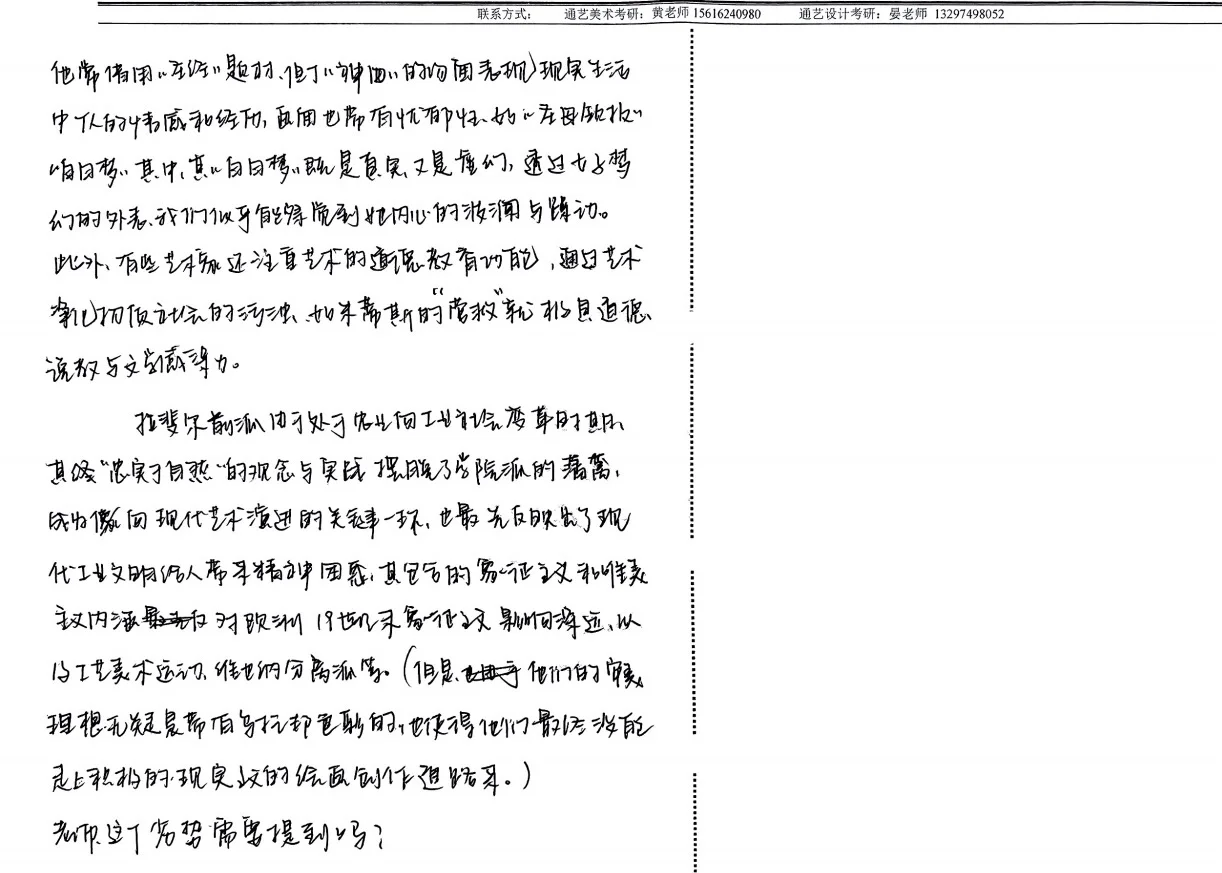 联系方式： 通艺美术考研：黄老师 15616240980 通艺设计考研：晏老师 13297498052
他常借用“圣经”题材、但个“神曲”的内国表现现实生活
中人的情感和经历，画面也带有忧郁性、如“圣母领报”
“白日梦”其中，其“白日梦”既是真实又是虚幻，透过女子梦
幻的外表、我们似乎能够觉到她内心的波澜与躁动。
此外、有些艺术家还注重艺术的道德教育功能，通过艺术
净化初级社会的污浊、如米蒂斯的“营救”就极具道德、
说教与文学感染力。
拉斐尔前派由于处于农业向工业社会变革时期、
其终“忠实于自然”的观念与实践摆脱了学院派的藩篱，
成为像向现代艺术演进的关键一环，也最先反映出了现
代工业文明给人带来精神困惑，其包含的象征主义和唯美
主义内涵对欧洲19世纪末象征主义影响深远、以
及工艺美术运动、维也纳分离派等。（但是、他们的审美
理想无疑是带有乌托邦色彩的，也使得他们最终没能
走上积极的现实主义的绘画创作道路来。）
老师、这个劣势需要提到吗？